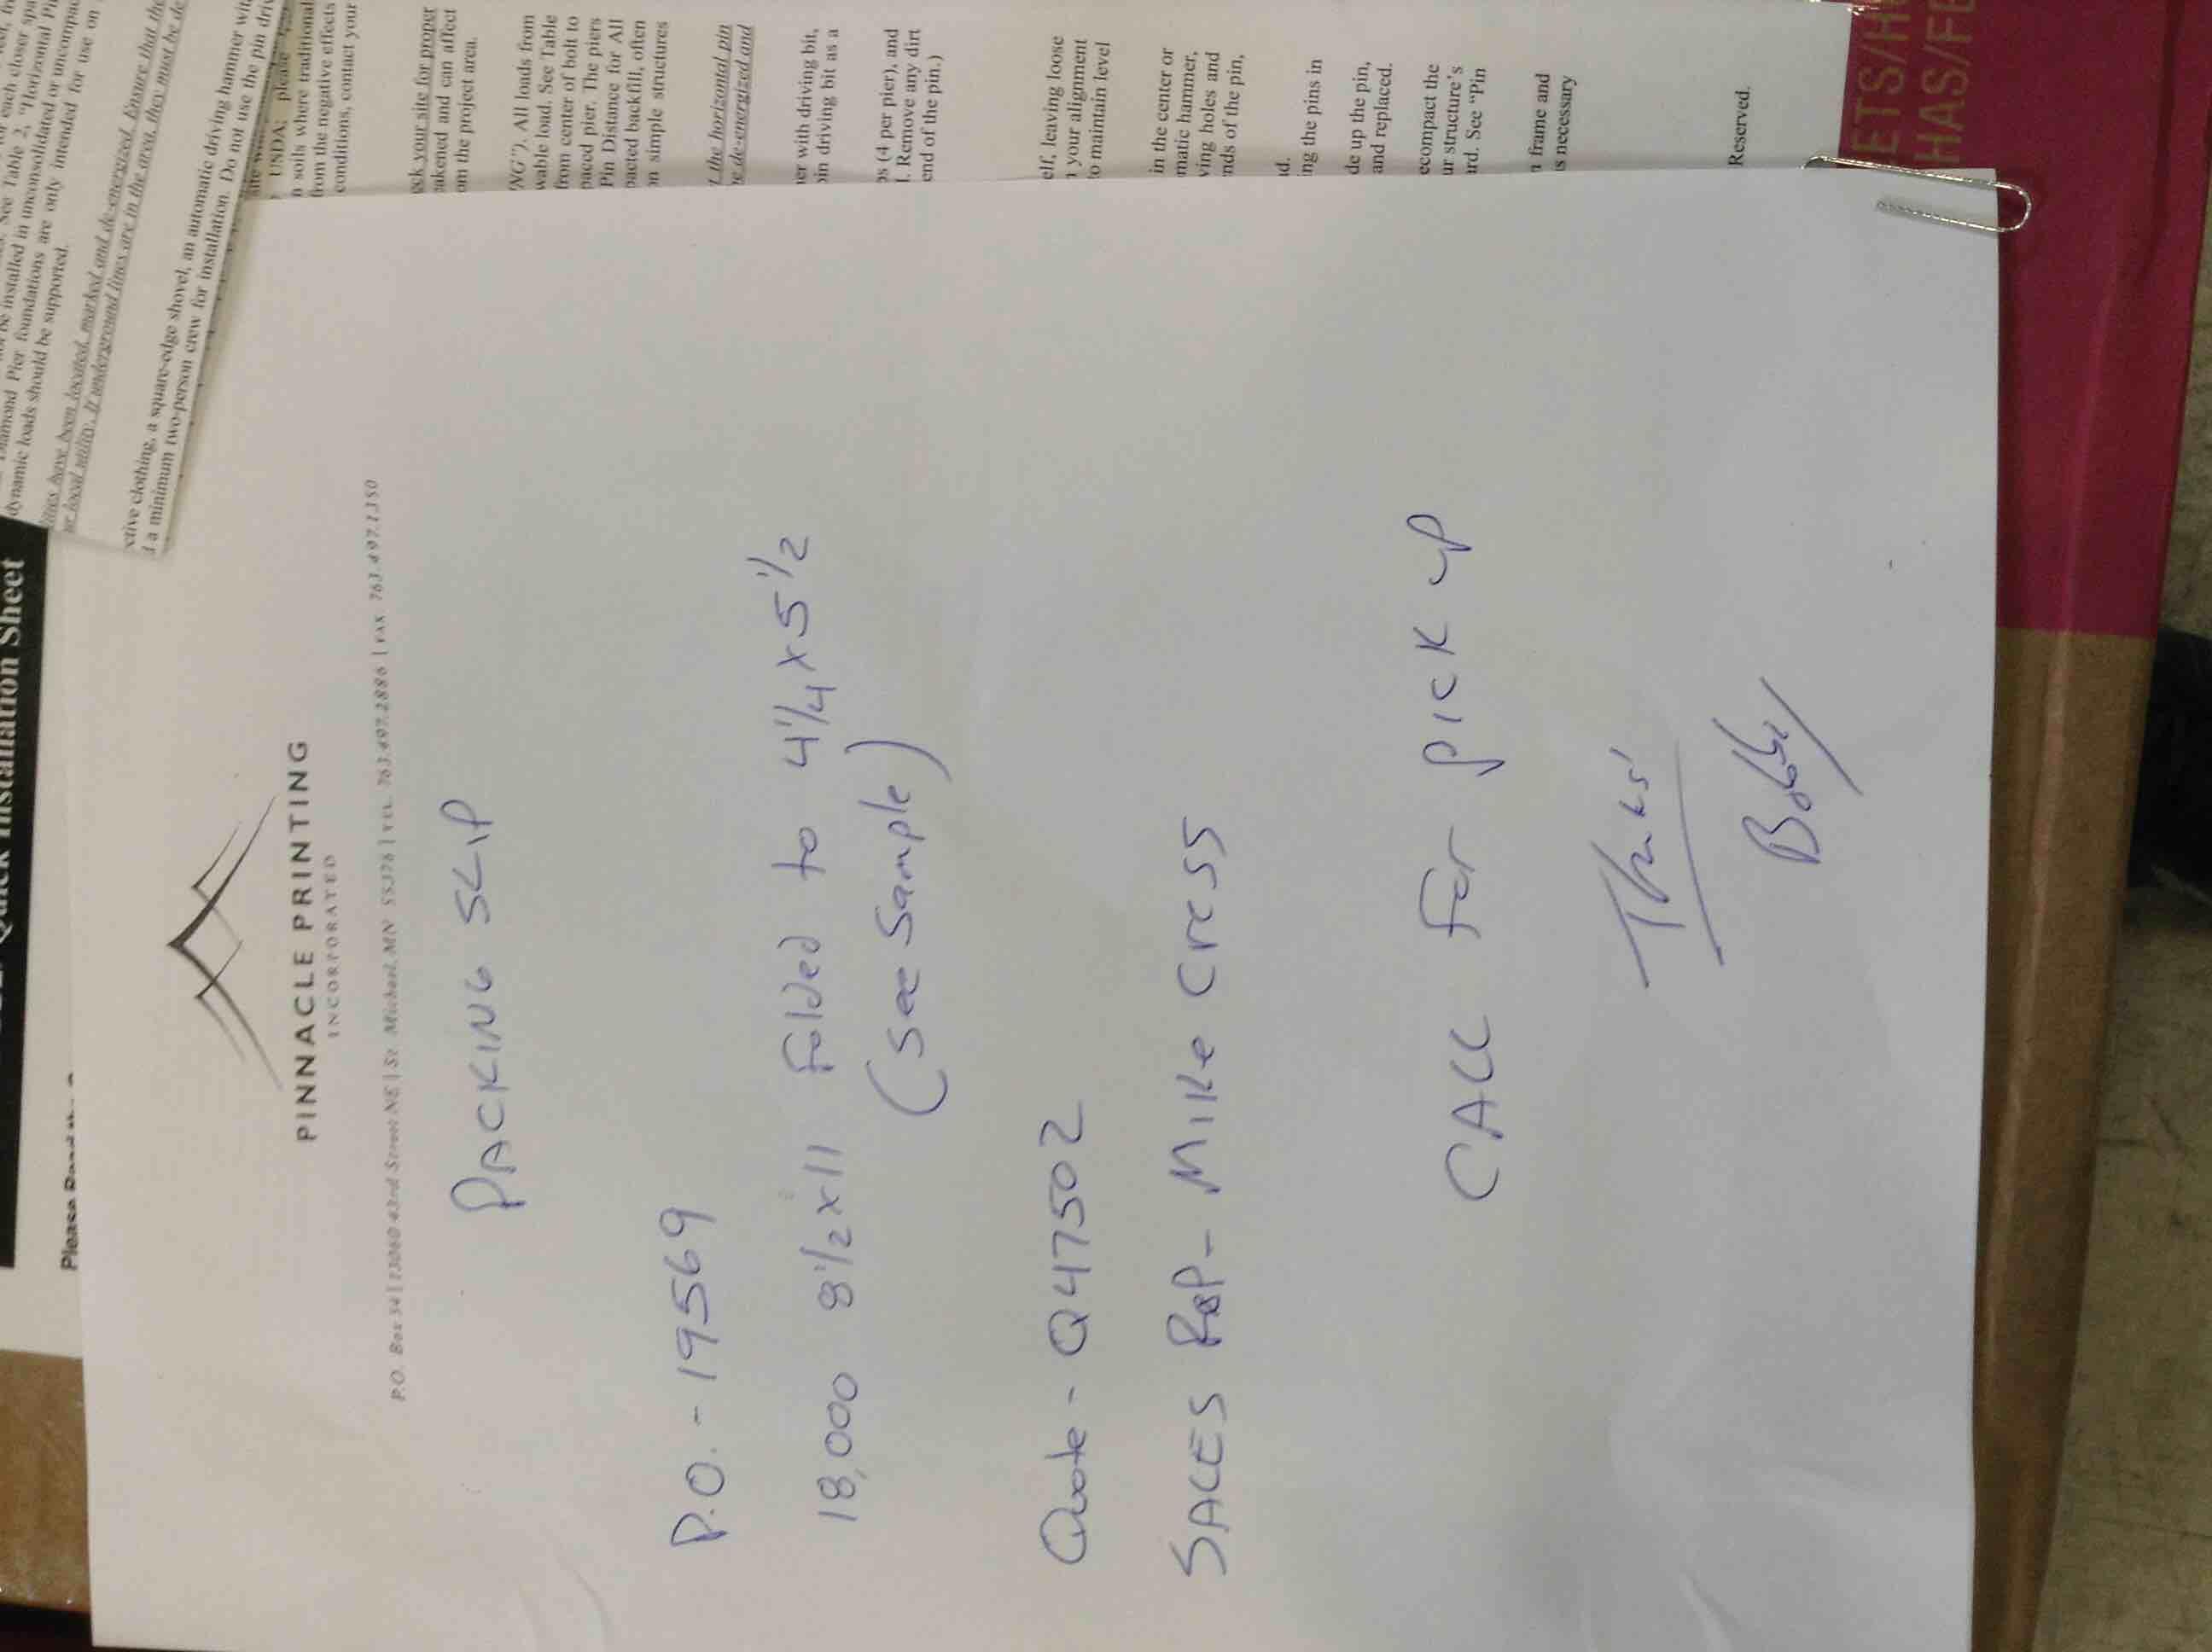 PINNACLE PRINTING
INCORPORATED
P.O. Box 34 | 13060 43rd Street NE | St. Michael, MN 55376 | TEL 763.497.2886 | FAX 763.497.1350
PACKING SLIP
P.O. - 19569
18,000 8 1/2 x 11 Folded to 4 1/4 x 5 1/2
(See Sample)
Quote - Q47502
SALES REP - Mike Cress
CALL For pick up
Thanks!
Bobby
Quick Installation Sheet
Please
each closer
See Table 2, "Horizontal
be installed in unconsolidated or uncompac
Diamond Pier foundations are only intended for use on
dynamic loads should be supported.
lines have been located, marked and de-energized. Ensure that the
ur local utility. If underground lines are in the area, they must be de
ctive clothing, a square-edge shovel, an automatic driving hammer wit
d a minimum two-person crew for installation. Do not use the pin driv
USDA; please
n soils where traditional
from the negative effects
conditions, contact your
eck your site for proper
eakened and can affect
om the project area.
NG"). All loads from
wable load. See Table
from center of bolt to
paced pier. The piers
Pin Distance for All
pacted backfill, often
on simple structures
the horizontal pin
be de-energized and
er with driving bit,
pin driving bit as a
ps (4 per pier), and
l. Remove any dirt
end of the pin.)
elf, leaving loose
n your alignment
to maintain level
in the center or
matic hammer,
ving holes and
nds of the pin,
d.
ng the pins in
de up the pin,
and replaced.
ecompact the
ur structure's
rd. See "Pin
n frame and
s necessary
Reserved.
ETS/H
HAS/FE